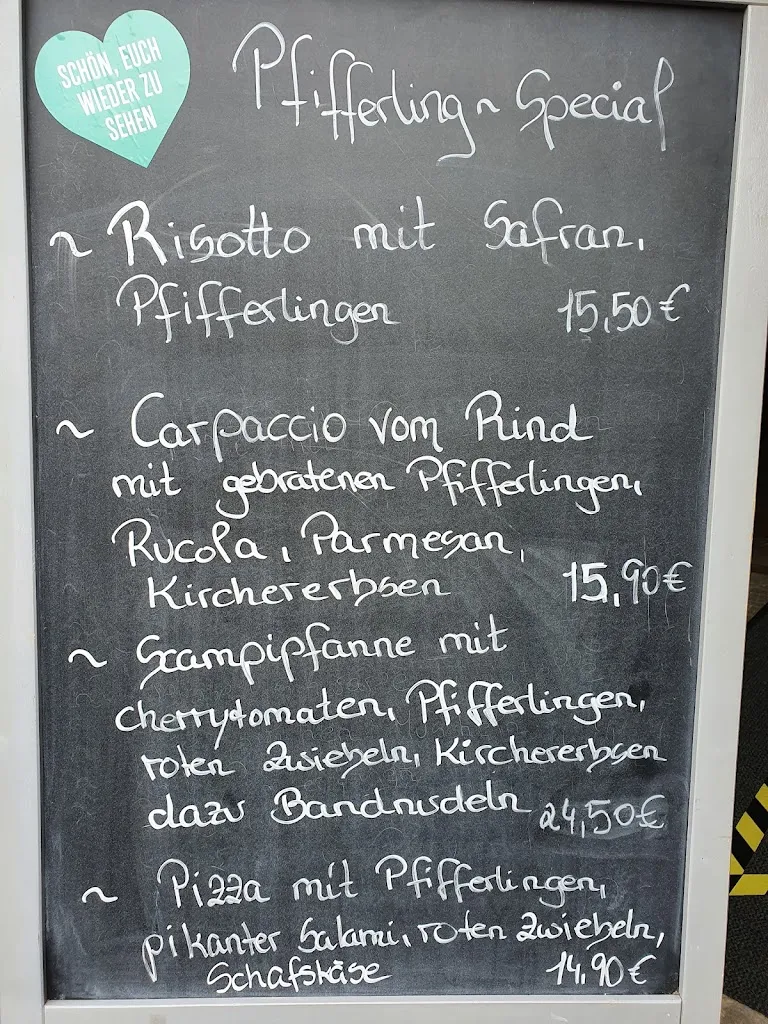 SCHÖN, EUCH
WIEDER ZU
SEHEN
Pfifferling ~ Special
~ Risotto mit Safran,
Pfifferlingen 15,50 €
~ Carpaccio vom Rind
mit gebratenen Pfifferlingen,
Rucola, Parmesan,
Kirchererbsen 15,90 €
~ Scampipfanne mit
cherrytomaten, Pfifferlingen,
roten Zwiebeln, Kirchererbsen
dazu Bandnudeln 24,50 €
~ Pizza mit Pfifferlingen,
pikanter Salami, roten Zwiebeln,
Schafskäse 14,90 €